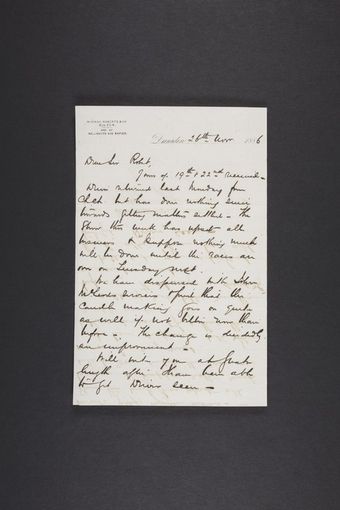 Dunedin, 26th Nov 1886
Dear Sir Robt,
Yours of 19th & 22nd received —
Driver returned last Monday from
Ch.ch but has done nothing since
towards getting matters settled — The
Show this week has upset all
business & I suppose nothing much
will be done until the races are
over on Tuesday next.
We have dispensed with John
McLeods services & find that the
Candle making goes on quite
as well if not better now than
before — The change is decidedly
an improvement —
Will write you at great
length after I have been able
to get Driver seen —